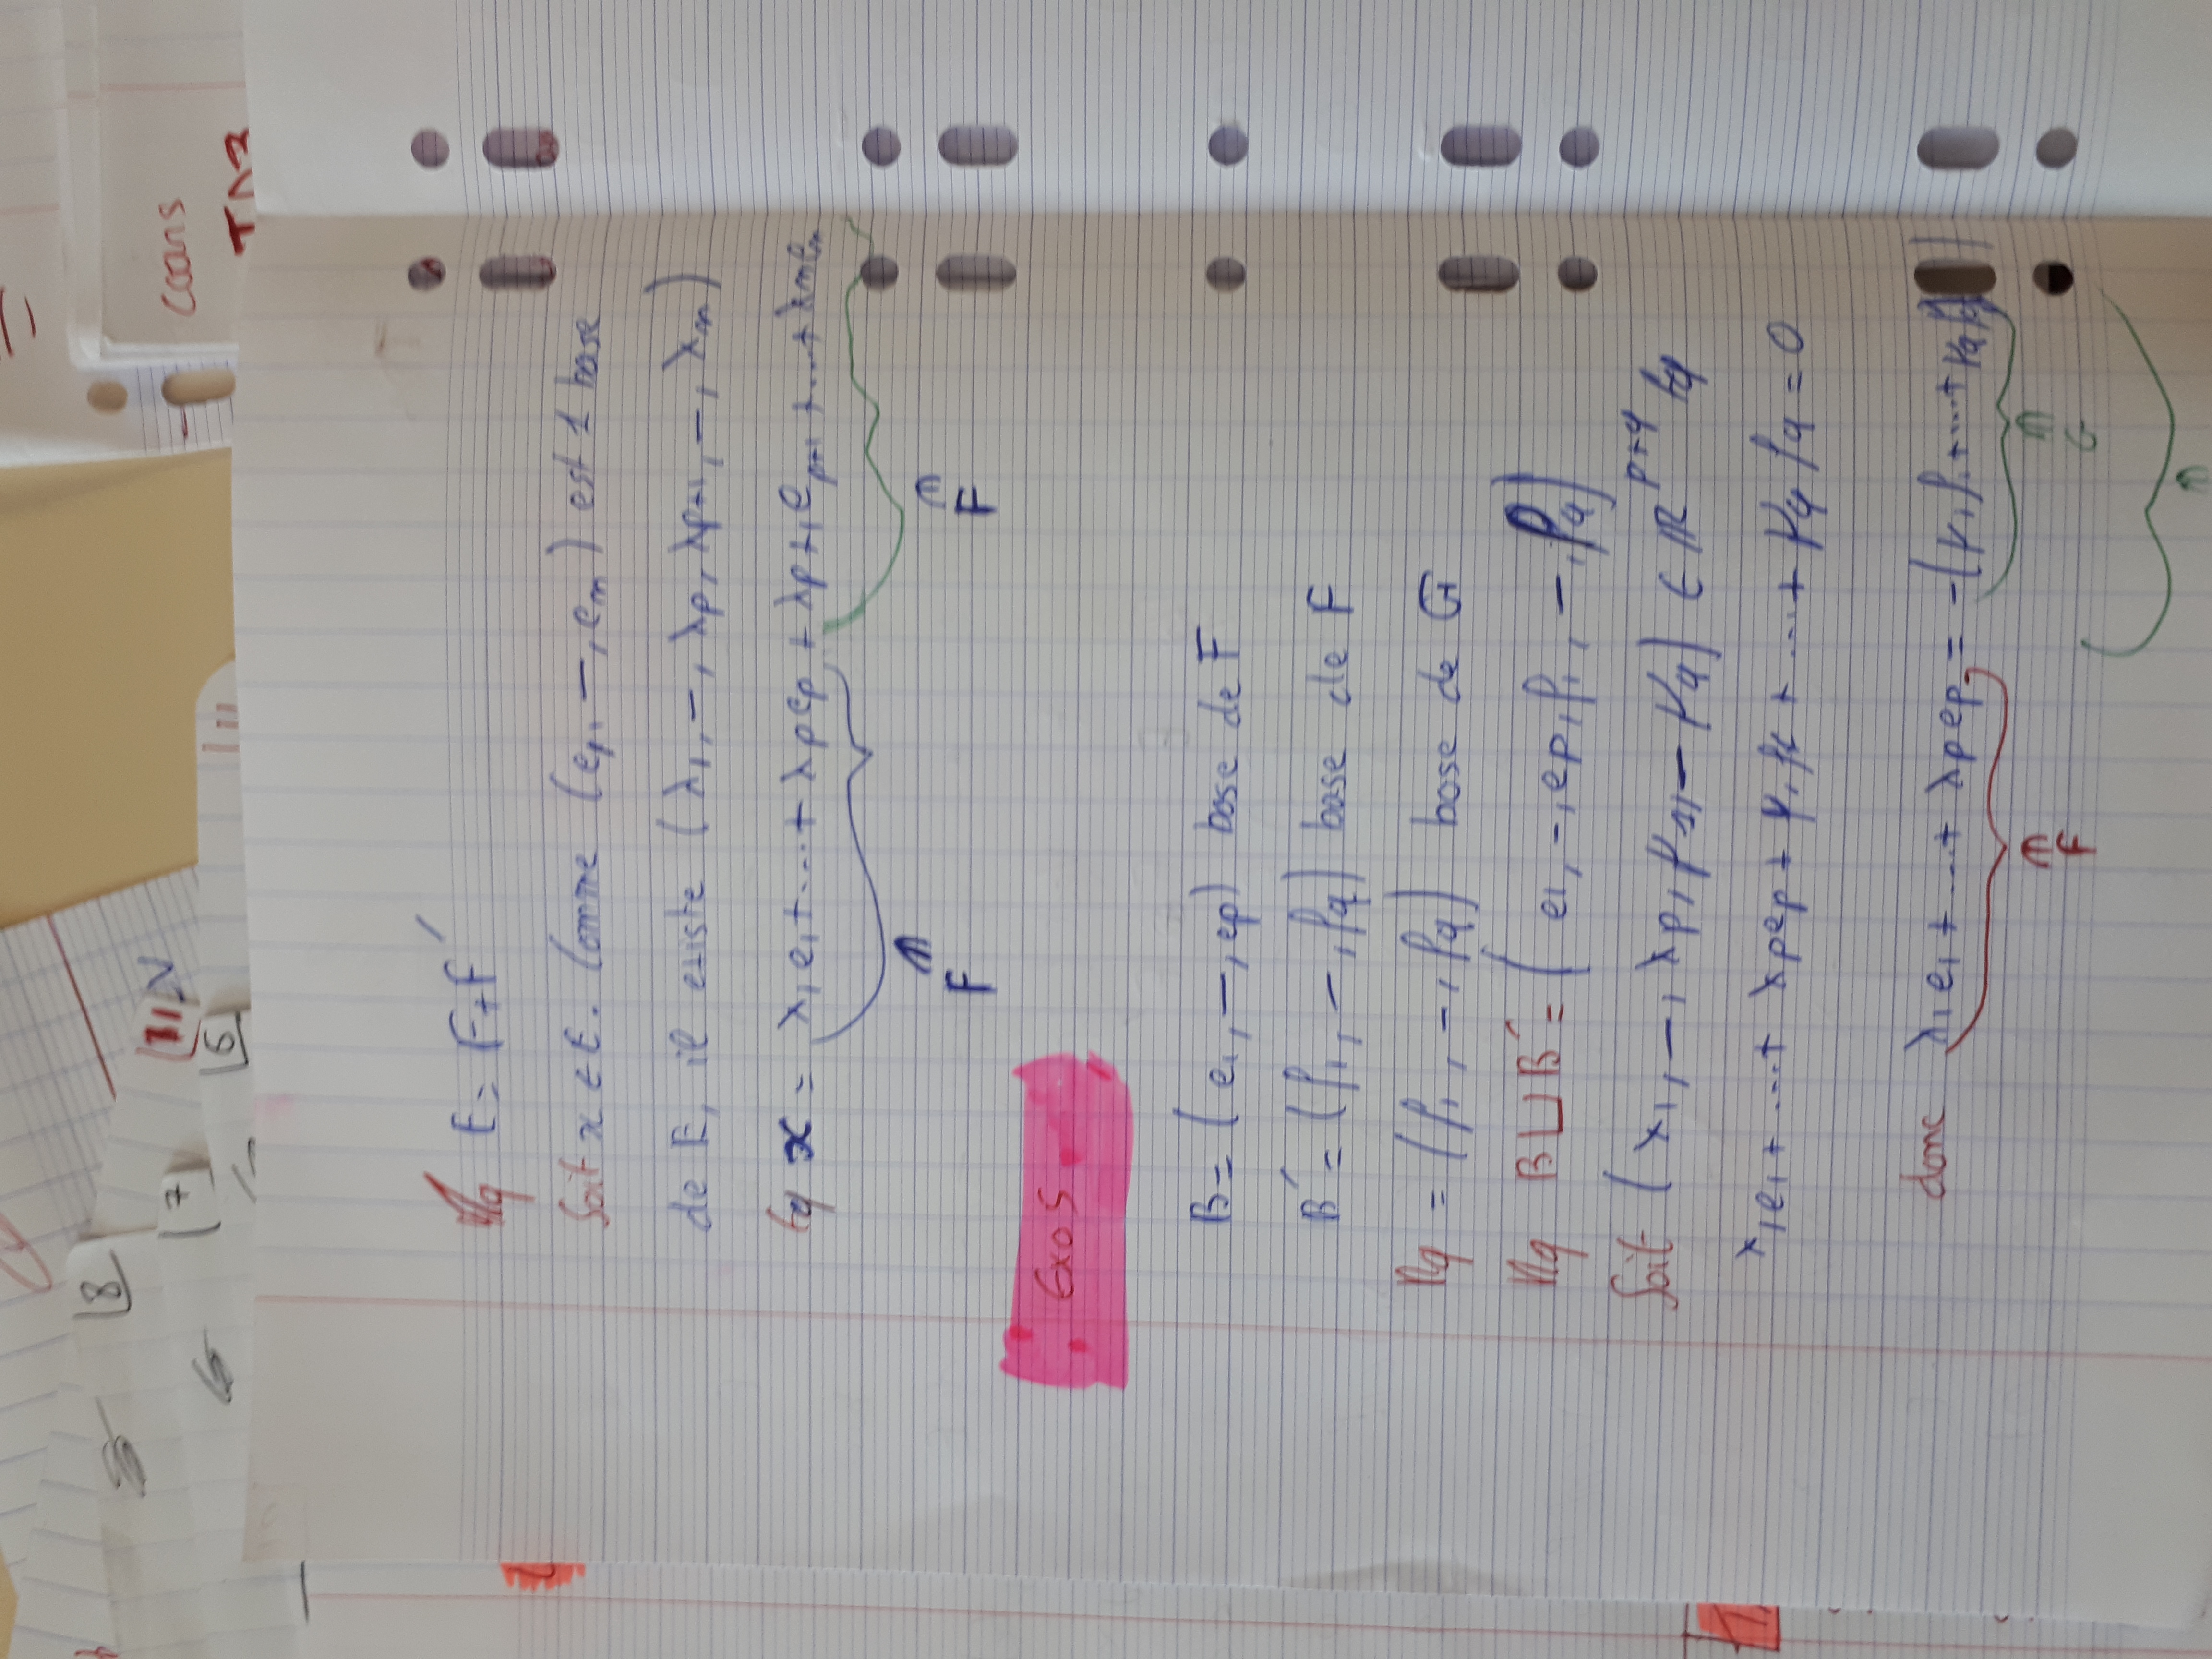 Mq E = F + F'
Soit x ∈ E. Comme (e1, –, em) est 1 base
de E, il existe (λ1, –, λp, λp+1, –, λm)
tq x = λ1e1 + .... + λpep + λp+1ep+1 + .... + λmem
∈ F ∈ F
Exo 5
B = (e1, –, ep) base de F
B' = (f1, –, fq) base de F
Mq = (f1, –, fq) base de G
Mq B ⊔ B' = (e1, –, ep, f1, –, fq)
Soit (λ1, –, λp, μ1, – μq) ∈ R^p+q tq
λ1e1 + .... + λpep + μ1f1 + .... + μqfq = 0
donc λ1e1 + .... + λpep = -(μ1f1 + .... + μqfq)
∈ F ∈ G
cours
TD2
8
7
6
IV